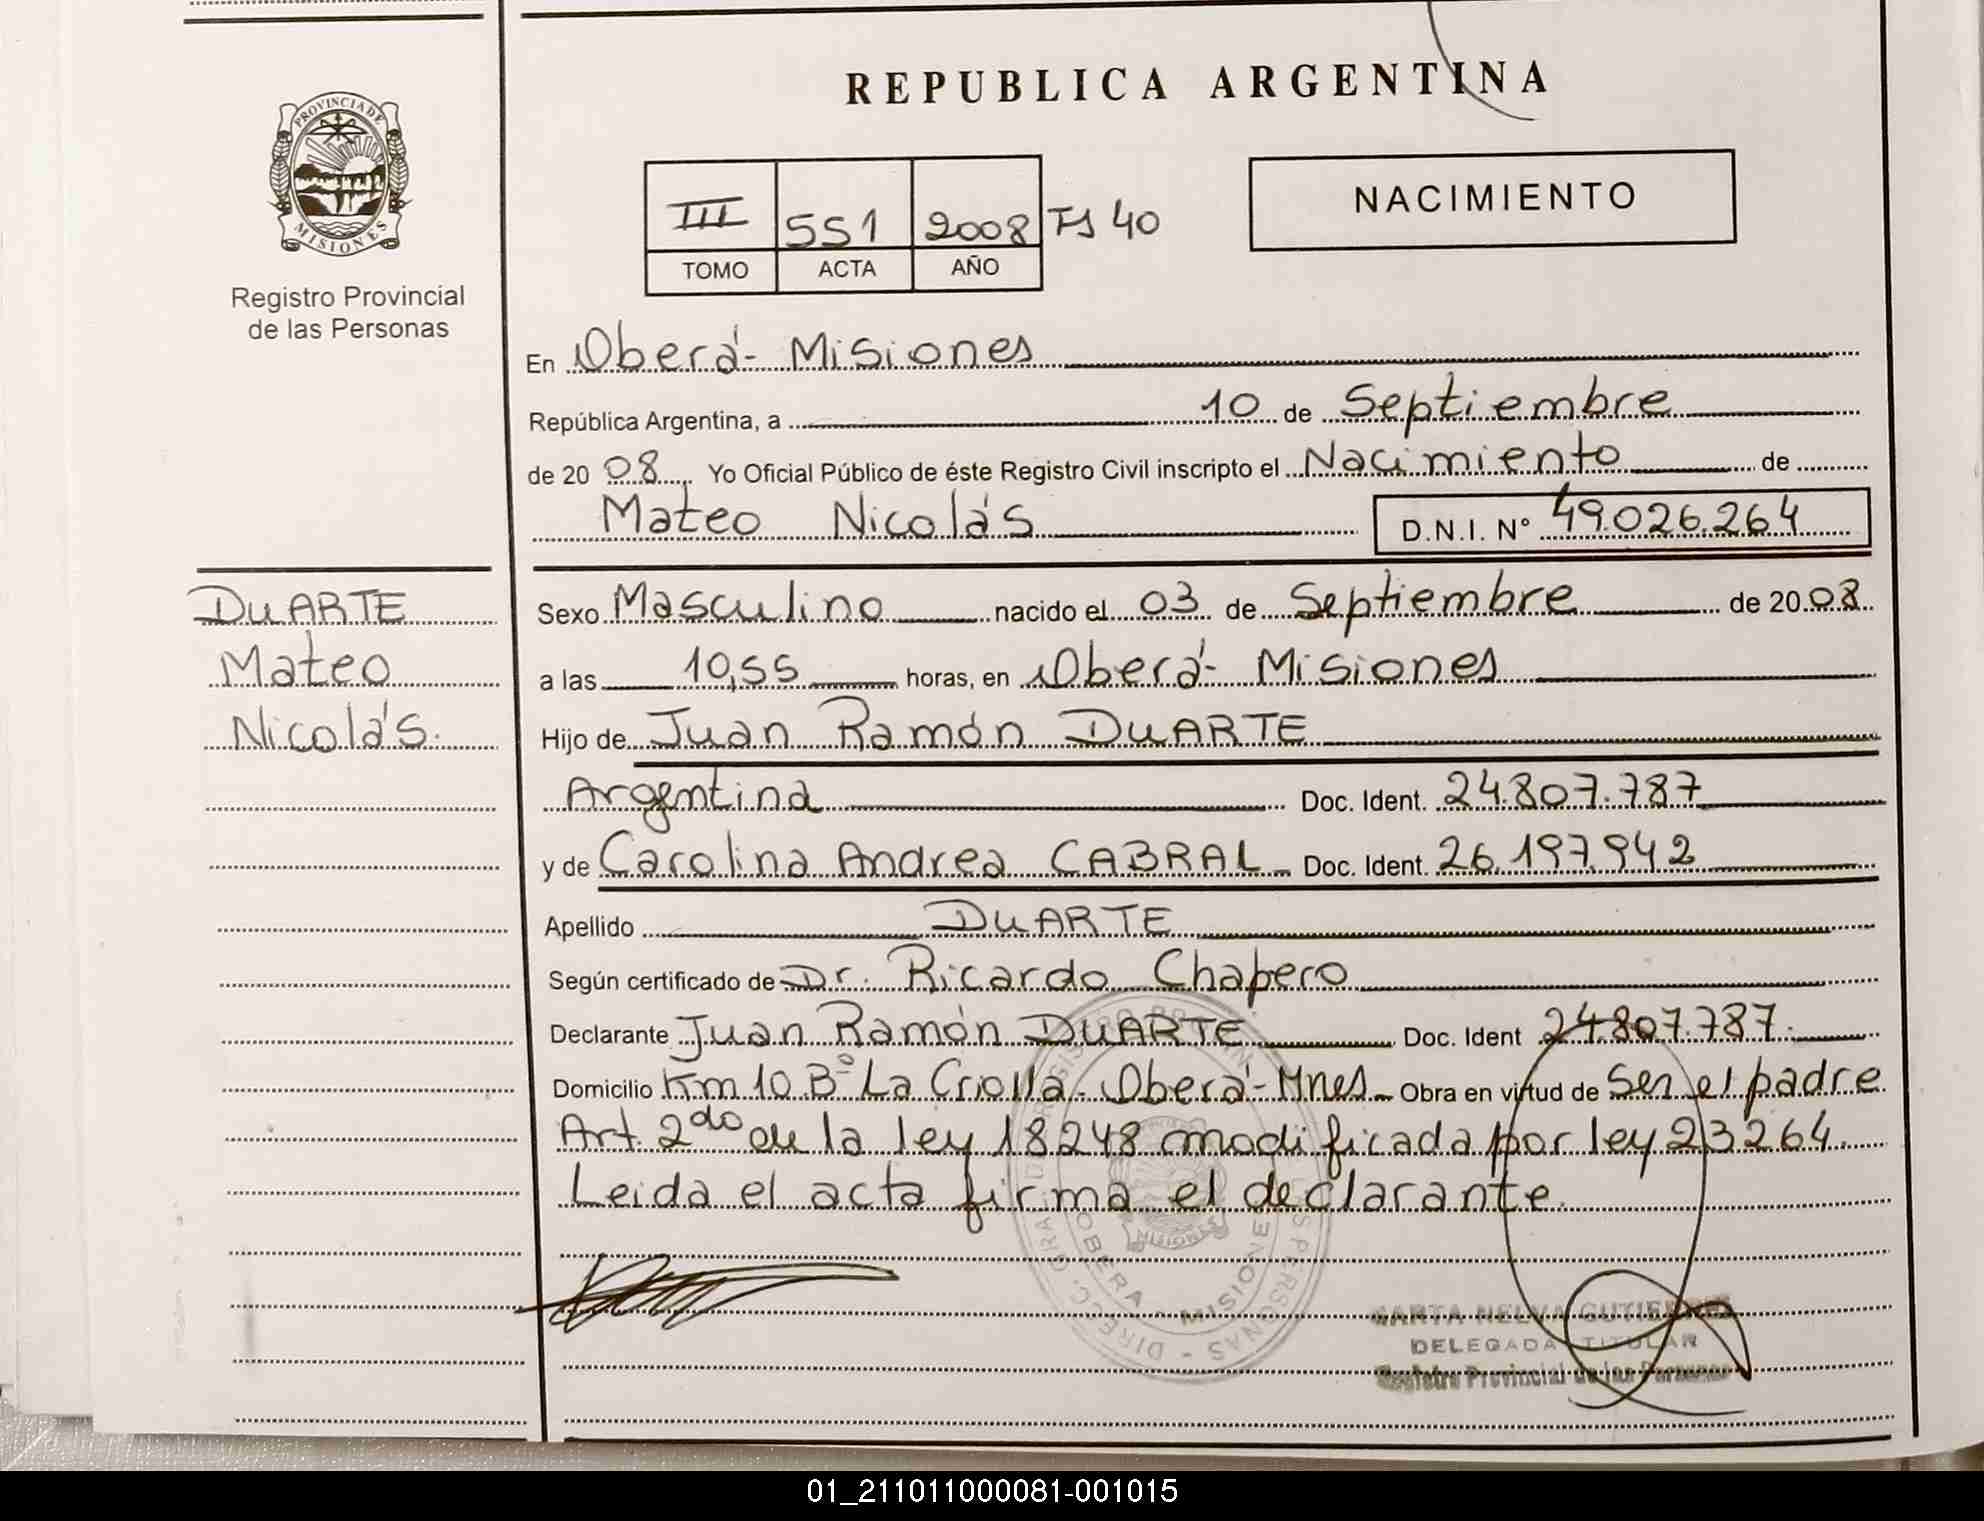 REPUBLICA ARGENTINA
PROVINCIA DE
MISIONES
Registro Provincial
de las Personas
III 551 2008 Fs 40
TOMO ACTA AÑO
NACIMIENTO
En Oberá- Misiones
República Argentina, a 10 de Septiembre
de 20 08 Yo Oficial Público de éste Registro Civil inscripto el Nacimiento de
Mateo Nicolás D.N.I. Nº 49.026.264
DUARTE
Mateo
Nicolás.
Sexo Masculino nacido el 03 de Septiembre de 20 08
a las 10,55 horas, en Oberá- Misiones
Hijo de Juan Ramón DUARTE
Argentina Doc. Ident. 24.807.787
y de Carolina Andrea CABRAL Doc. Ident. 26.197.942
Apellido DUARTE
Según certificado de Dr. Ricardo Chapero
Declarante Juan Ramón DUARTE Doc. Ident 24.807.787.
Domicilio Km 10 Bº La Criolla- Oberá- Mnes Obra en virtud de Ser el padre
Art. 2do de la ley 18248 modificada por ley 23264.
Leida el acta firma el declarante.
OBERA - MISIONES
MISIONES
NELVA GUTIERREZ
DELEGADA TITULAR
Registro Provincial de las Personas
01_211011000081-001015